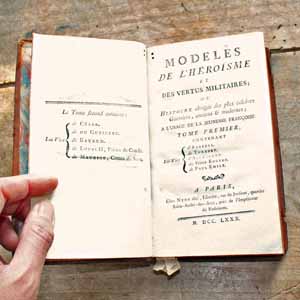 Le Tome second contient:
de CÉSAR,
de DU GUESCLIN,
Les Vies de BAYARD,
de LOUIS II, Prince de Condé,
de MAURICE, Comte de Saxe.
MODELES
DE L'HÉROÏSME
ET
DES VERTUS MILITAIRES;
OU
HISTOIRE abrégée des plus célebres
Guerriers, anciens & modernes;
A L'USAGE DE LA JEUNESSE FRANÇOISE
TOME PREMIER,
CONTENANT
Les Vies
de TURENNE,
du Prince EUGENE,
de PAUL EMILE.
A PARIS,
Chez NYON aîné, Libraire, rue du Jardinet, quartier
Saint-André-des-Arcs, près de l'Imprimeur
du Parlement.
M. DCC. LXXX.